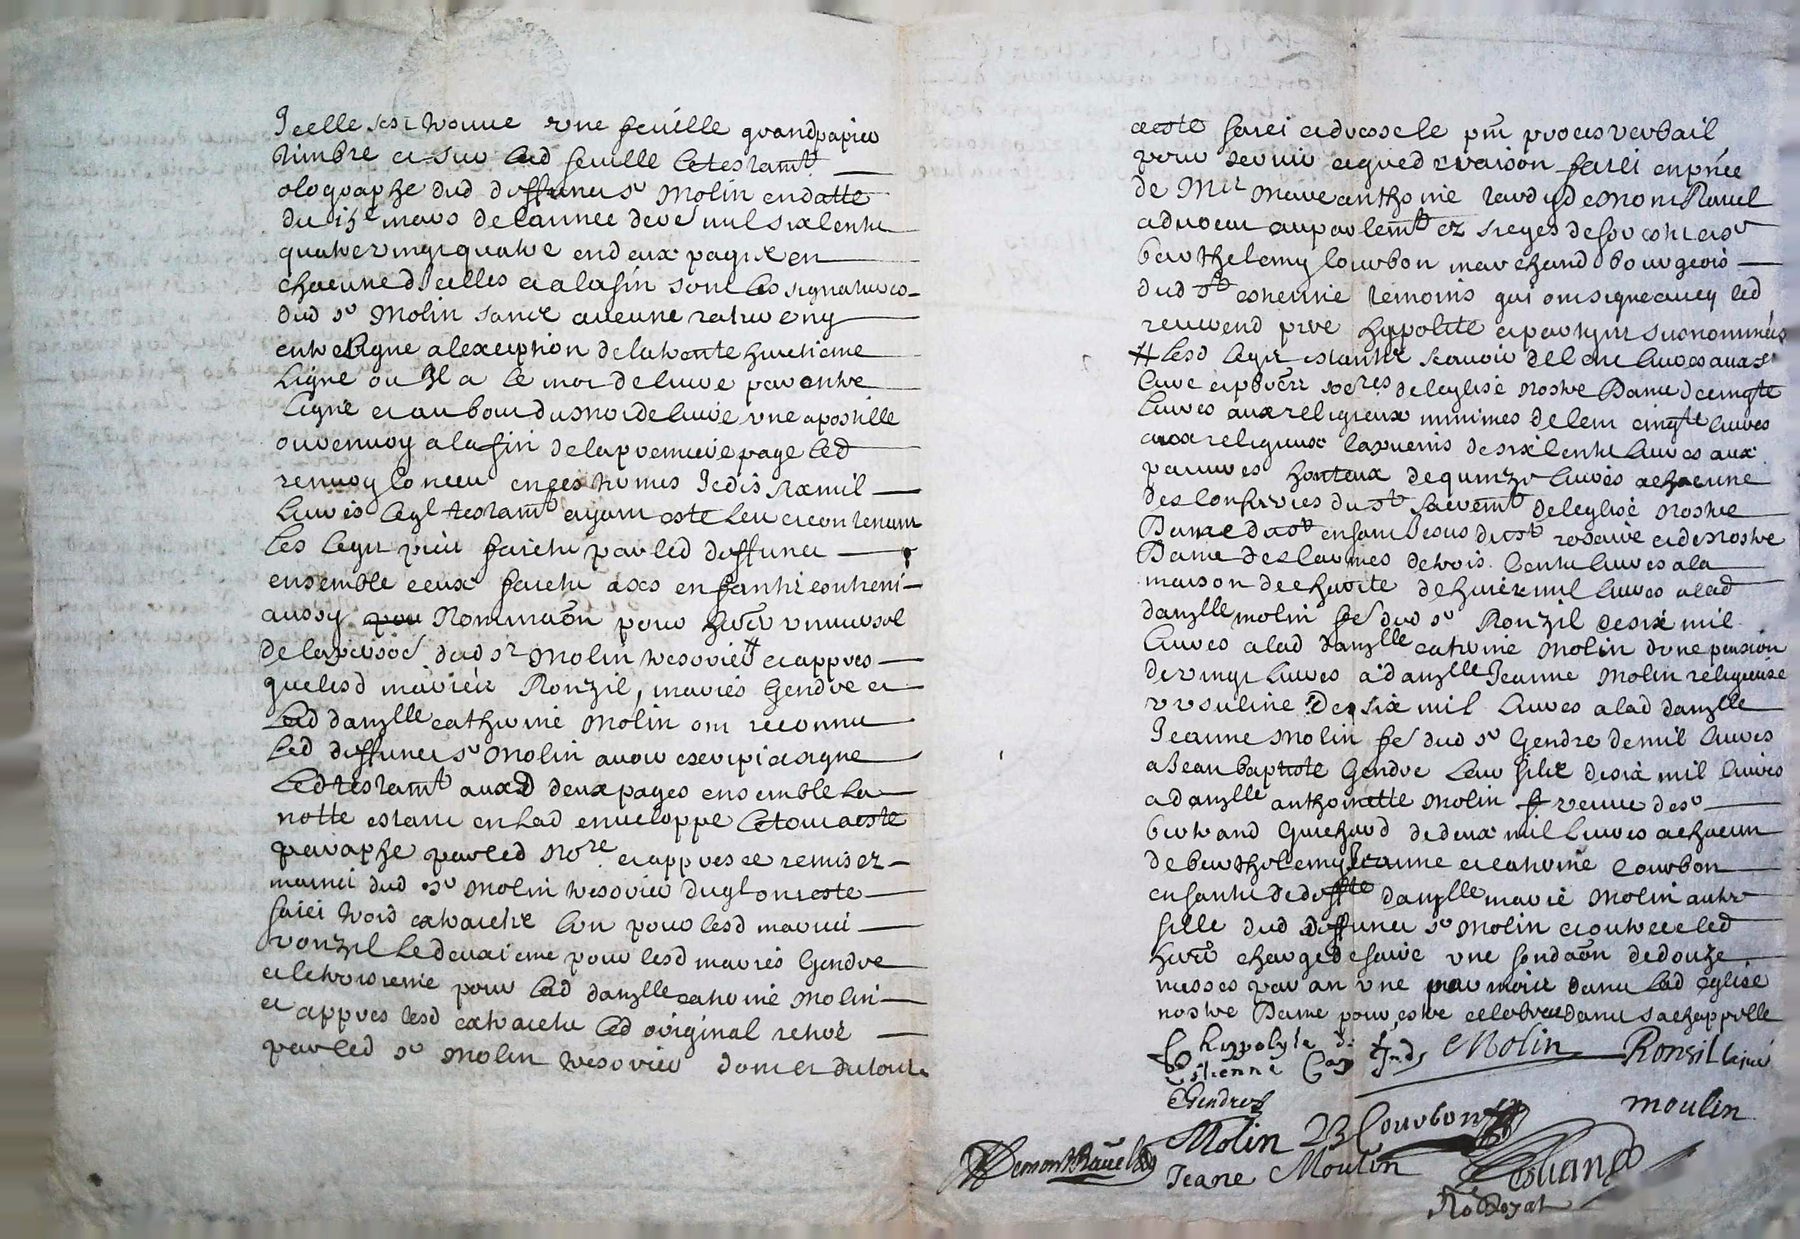 Icelle sest trouue vne feuille grand papier
timbre et sur lad feuille le testamt
olographe dud deffunct sr Molin en datte
du 15e mars de lannee derre mil six cents
quatre vingt quatre en deux pages en
chacune dicelles et a la fin sont les signatures
dud sr Molin sans aucune rature ny
entreligne a lexception de la trente huictieme
Ligne ou Il a le mot de liure par entre
Ligne et au bout du mot de liure vne apostille
ou renuoy a la fin de la premiere page led
renuoy conceu en ces termes Ie dis six mil
Liures leql testamt ayant este leu et contenant
les legts pies faicts par led deffunct
ensemble ceux faicts a ses enfants contient
aussy Nommaōn pour herēr vniuersel
dud sr Molin tresorier et appres
que lesd mariés Ronzil, mariés Gendre et
lad damlle catherine Molin ont reconnu
led deffunct sr Molin auoir escript et signe
led testamt auxd deux pages ensemble la
notte estant en lad enveloppe le tout a este
paraphe par led Nore et appres ce remis ez
mains dud sr Molin tresorier duql ont este
faict trois extraicts lun pour lesd mariés
ronzil le deuxieme pour lesd mariés Gendre
et le troisieme pour lad damlle catherine Molin
et appres lesd extraicts led original retiré
par led sr Molin tresorier dont et du tout
a este faict et dresse le pnt proces verbail
pour seruir a qui de raison faict en pñce
de Mre Marc anthoine raudy de Mont Rauel
aduocat au parlemt ez sieges de forests et sr
barthelemy Courbon marchand bourgeois
dud st estienne temoins qui ont signe auecq led
reuerend pere hyppolite et parties susnommées
# lesd legts estants scauoir de cent liures aux srs
Cure et pbrēs socres de leglise nostre Dame de cinqte
Liures aux religieux minimes de cent cinqte liures
aux religieux capucins de six cents liures aux
pauures honteux de quinze liures a chacune
des confreries du st sacremt de leglise nostre
Dame du st enfant Iesus du st rosaire et de nostre
Dame des larmes de trois cents liures a la
maison de charite de huict mil liures a lad
damzlle molin fe dud sr Ronzil de six mil
Liures a lad damzlle catherine Molin dvne pension
de vingt liures a damzlle Jeanne Molin religieuse
vrsuline de six mil liures a lad damzlle
Jeanne Molin fe dud sr Gendre de mil liures
a Jean baptiste Gendre leur filz de six mil liures
a damzlle anthoinette Molin veuue de sr
bertrand Guichard de deux mil Liures a chacun
de barthelemy Jeanne et catherine Courbon
enfants de deffte damzlle marie Molin autre
fille dud deffunct sr Molin et outre ce led
herēr charge de faire vne fondaōn de douze
messes par an vne par mois dans lad eglise
nostre Dame pour estre celebree dans sa chappelle
f hyppolyte de st Estienne Cap Ind Molin Ronzil
Gendre
Molin B Courbon moulin
Demont Rauel Jeane Moulin